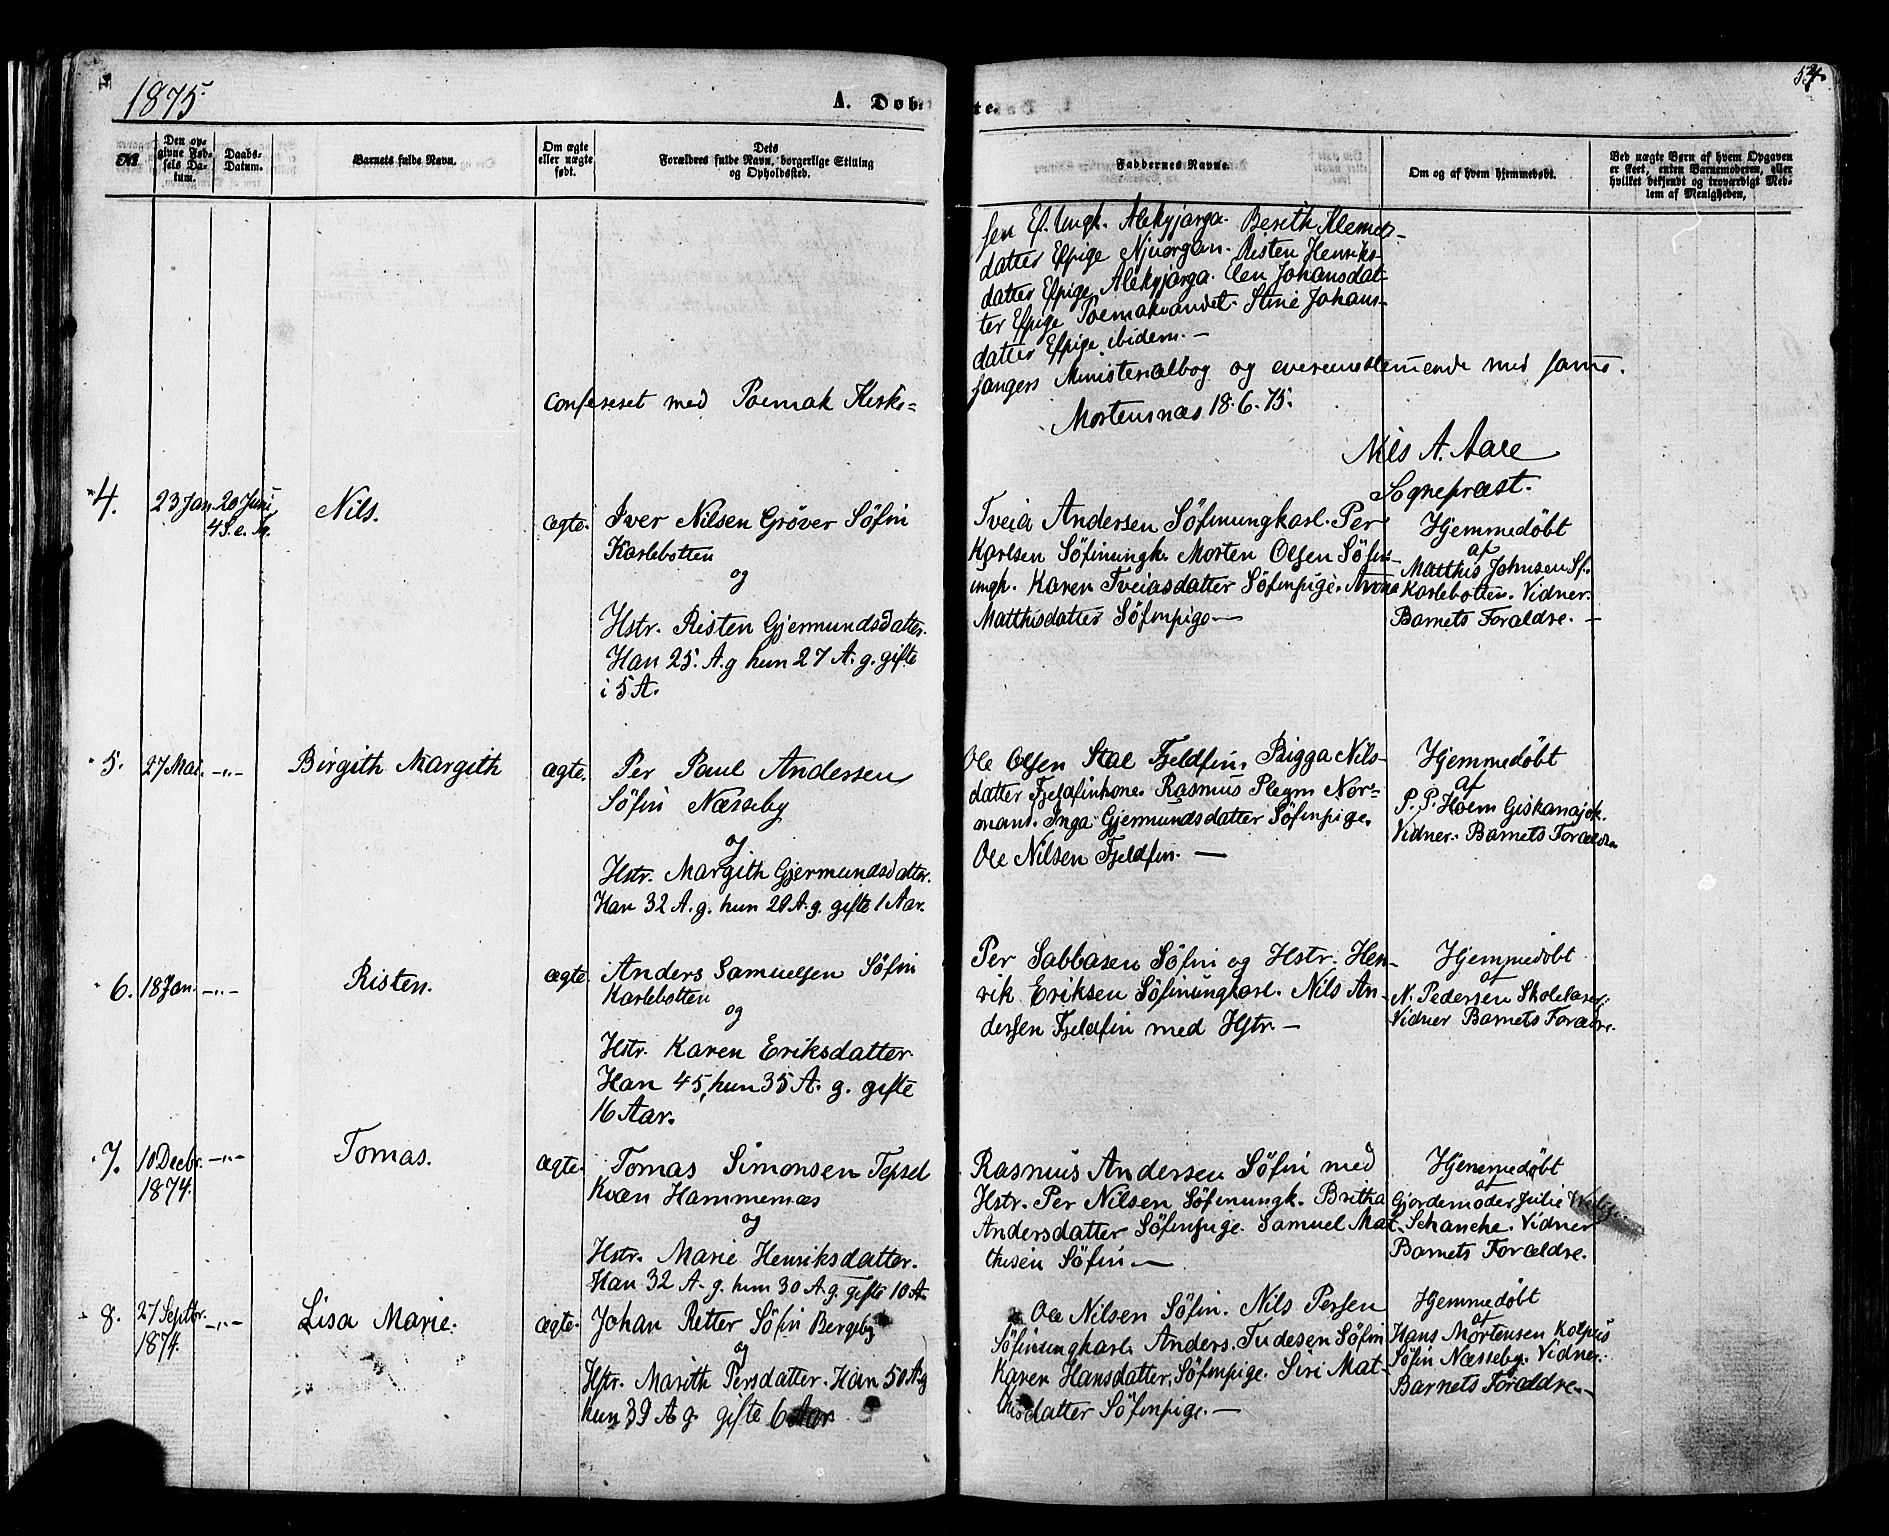 1875
A. Døbte.
54.
No.
Den opgivne Fødsels Datum.
Daabs-Datum.
Barnets fulde Navn.
Om ægte eller uægte født.
Dets Forældres fulde Navn, borgerlige Stilling og Opholdssted.
Faddernes Navne.
Om og af hvem hjemmedøbt.
Ved uægte Børn af hvem Opgaven er skeet, enten Barnemoderen, eller hvilket bekjendt og troværdigt Medlem af Menigheden.
sen Sf. Ungk. Alekjarga. Berith Klemets-
datter Sfpige Njuorgan. Risten Henriks-
datter Sfpige Alekjarga. Elen Johansdat-
ter Sfpige Polmakvandet. Stine Johans-
datter Sfpige ibidem.—
confereret med Polmak Kirke-
sangers Ministerialbog og overensstemmende med samme.
Mortensnæs 18.6.75.
Nils A. Aall
Sognepræst.
4.
23 Jan.
20 Juni
4 S. e. tr.
Nils.
ægte.
Iver Nilsen Grøver Søfin
Karlebotten
og
Hstr. Risten Gjermundsdatter.
Han 25. A. g. hun 27 A. g. gifte
i 5 A.
Tveia Andersen Søfinungkarl. Per
Karlsen Søfinungk. Morten Olsen Søfin-
ungk. Karen Tveiasdatter Søfinpige. Anna
Matthisdatter Søfinpige—
Hjemmedøbt
af
Matthis Johnsen Sf.
Karlebotten. Vidner.
Barnets Forældre.—
5.
27 Mai.
—„—
Birgith Margith
ægte.
Per Paul Andersen
Søfin Næsseby
og
Hstr. Margith Gjermundsdatter.
Han 32 A. g. hun 29 A. g. gifte 1 Aar.
Ole Olsen Stal Fjeldfin. Bigga Nils-
datter Fjeldfinkone. Rasmus Plegm Nor-
mand. Inga Gjermundsdatter Søfinpige.
Ole Nilsen Fjeldfin.—
Hjemmedøbt
af
P. P. Hoem Giskanajok.
Vidner. Barnets Forældre
6.
18 Jan.
—„—
Risten.
ægte
Anders Samuelsen Søfin
Karlebotten
og
Hstr. Karen Eriksdatter.
Han 45, hun 35 A. g. gifte
16 Aar.
Per Sabbasen Søfin og Hstr. Hen-
rik Eriksen Søfinungkarl. Nils An-
dersen Fjeldfin med Hstr.—
Hjemmedøbt
af
N. Pedersen Skolelærer.
Vidner Barnets Forældre.
7.
10 Decbr.
1874.
—„—
Tomas.
ægte.
Tomas Simonsen Tepsel
Kvæn Hammernæs
og
Hstr. Marie Henriksdatter.
Han 32 A. g. hun 30 A. g. gifte 10 A.
Rasmus Andersen Søfin med
Hstr. Per Nilsen Søfinungk. Britha
Andersdatter Søfinpige. Samuel Mat-
thisen Søfin.—
Hjemmedøbt
af
Gjordemoder Julie
Schanche. Vidner
Barnets Forældre.
8.
27 Septbr.
1874.
—„—
Lisa Marie.
ægte.
Johan Retter Søfin Bergeby
og
Hstr. Marith Persdatter. Han 50 A. g
hun 39 A. g. gifte 6 Aar
Ole Nilsen Søfin. Nils Persen
Søfinungkarl. Anders Tudesen Søfin
Karen Hansdatter, Søfinpige. Siri Mat-
thisdatter Søfinpige.—
Hjemmedøbt
af
Hans Mortensen Kolpus
Søfin Næsseby. Vidner.
Barnets Forældre.—